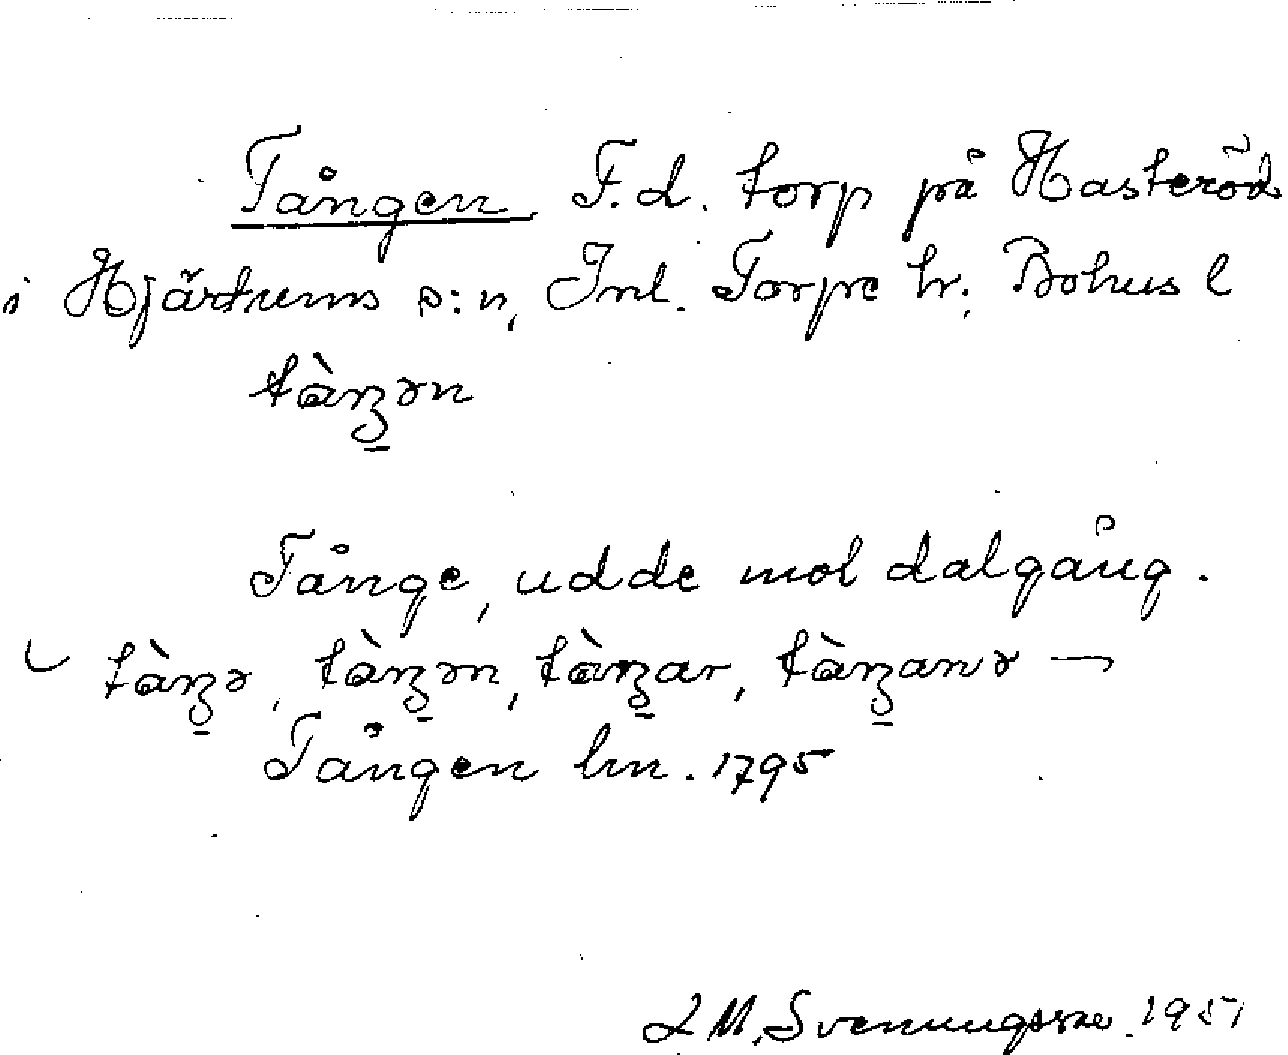 Tången F.d. torp på Hasteröd
i Hjärtums s:n, Inl. Torpe hr, Bohus l
tàŋən
Tånge, udde mot dalgång.
tàŋə, tàŋən, tàŋar, tàŋanə
Tången hm. 1795
L M. Svenungsson. 1951